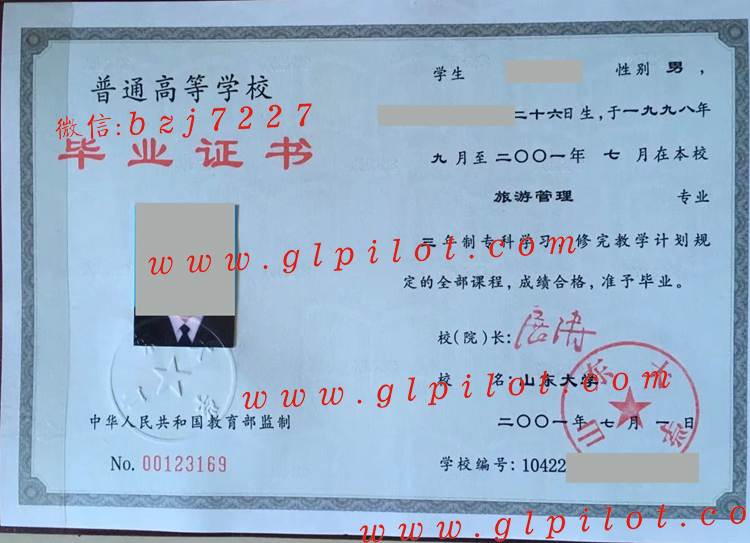 普通高等学校
微信:bzj7227
毕业证书
www.glpilot.com
中华人民共和国教育部监制
No. 00123169
学生 性别 男，
二十六日生，于一九九八年
九月至二〇〇一年 七 月在本校
旅游管理 专业
三年制专科学习 修完教学计划规
定的全部课程，成绩合格，准予毕业。
校(院)长:
www.glpilot.com
校 名:山东大学
二〇〇一年 七 月 一 日
山东大学
学校编号:10422
www.glpilot.co